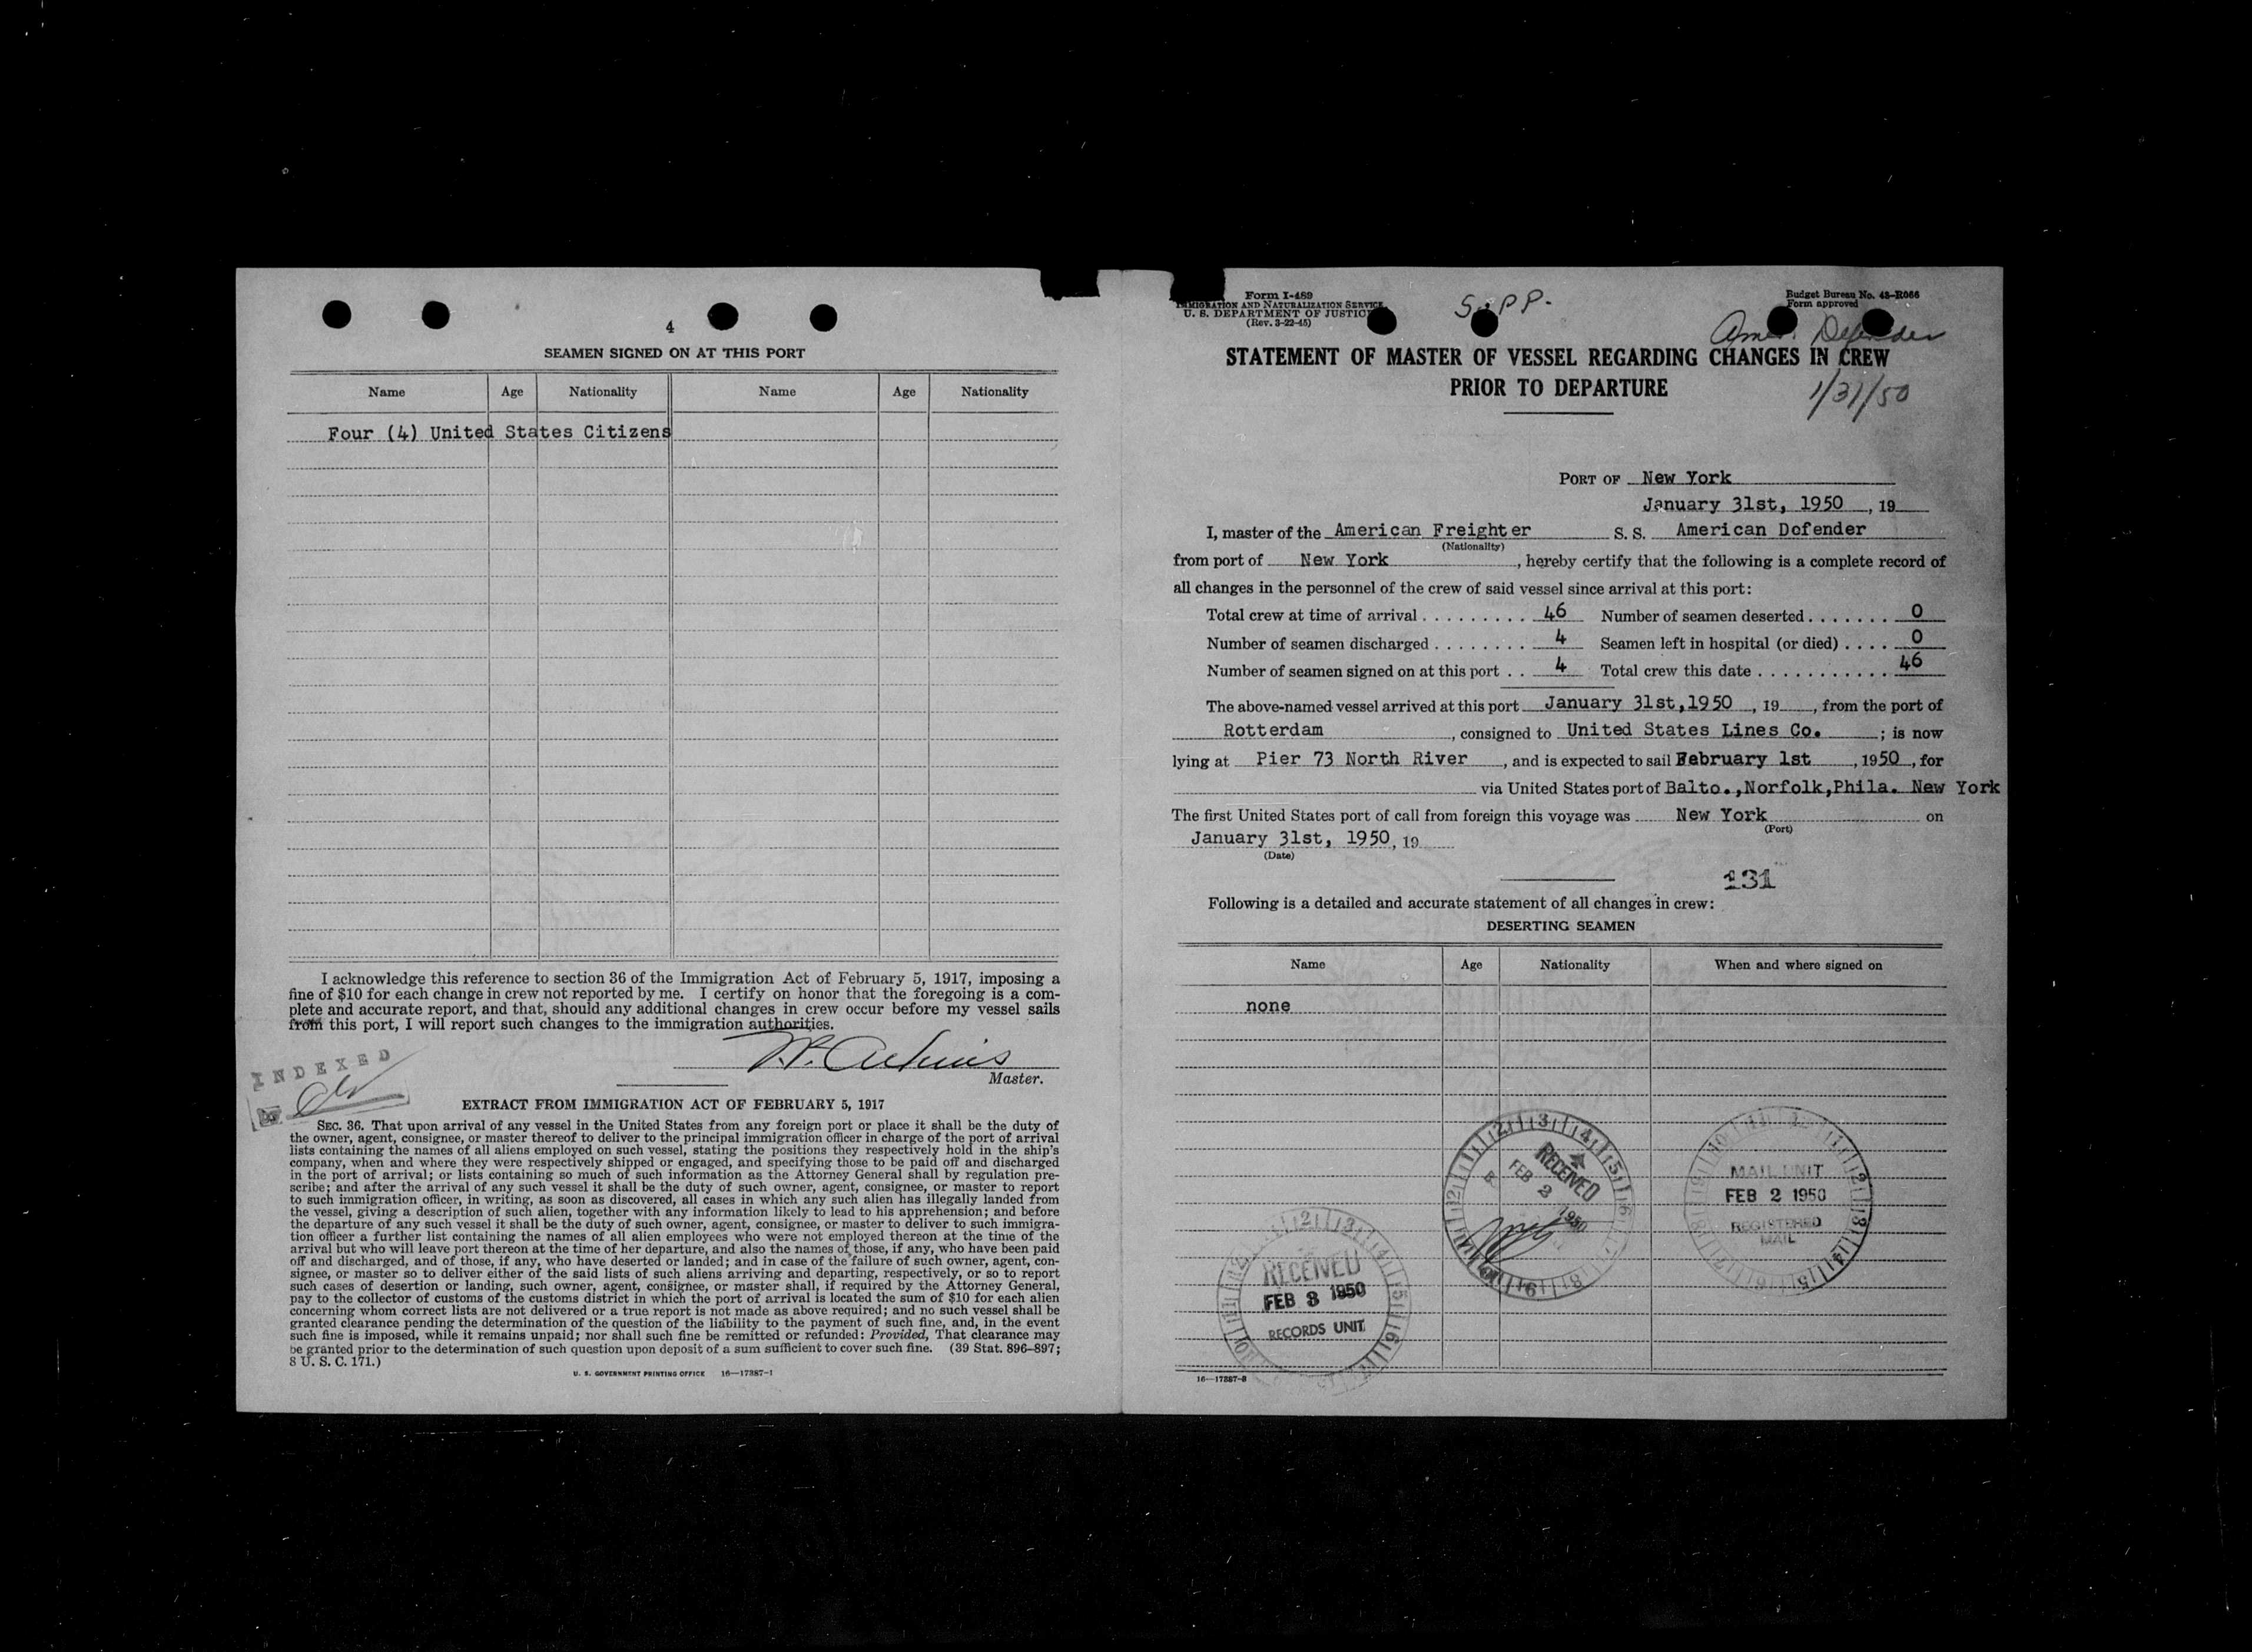 4
SEAMEN SIGNED ON AT THIS PORT
Name Age Nationality Name Age Nationality
Four (4) United States Citizens
I acknowledge this reference to section 36 of the Immigration Act of February 5, 1917, imposing a
fine of $10 for each change in crew not reported by me. I certify on honor that the foregoing is a com-
plete and accurate report, and that, should any additional changes in crew occur before my vessel sails
from this port, I will report such changes to the immigration authorities.
Master.
INDEXED
EXTRACT FROM IMMIGRATION ACT OF FEBRUARY 5, 1917
SEC. 36. That upon arrival of any vessel in the United States from any foreign port or place it shall be the duty of
the owner, agent, consignee, or master thereof to deliver to the principal immigration officer in charge of the port of arrival
lists containing the names of all aliens employed on such vessel, stating the positions they respectively hold in the ship's
company, when and where they were respectively shipped or engaged, and specifying those to be paid off and discharged
in the port of arrival; or lists containing so much of such information as the Attorney General shall by regulation pre-
scribe; and after the arrival of any such vessel it shall be the duty of such owner, agent, consignee, or master to report
to such immigration officer, in writing, as soon as discovered, all cases in which any such alien has illegally landed from
the vessel, giving a description of such alien, together with any information likely to lead to his apprehension; and before
the departure of any such vessel it shall be the duty of such owner, agent, consignee, or master to deliver to such immigra-
tion officer a further list containing the names of all alien employees who were not employed thereon at the time of the
arrival but who will leave port thereon at the time of her departure, and also the names of those, if any, who have been paid
off and discharged, and of those, if any, who have deserted or landed; and in case of the failure of such owner, agent, con-
signee, or master so to deliver either of the said lists of such aliens arriving and departing, respectively, or so to report
such cases of desertion or landing, such owner, agent, consignee, or master shall, if required by the Attorney General,
pay to the collector of customs of the customs district in which the port of arrival is located the sum of $10 for each alien
concerning whom correct lists are not delivered or a true report is not made as above required; and no such vessel shall be
granted clearance pending the determination of the question of the liability to the payment of such fine, and, in the event
such fine is imposed, while it remains unpaid; nor shall such fine be remitted or refunded: Provided, That clearance may
be granted prior to the determination of such question upon deposit of a sum sufficient to cover such fine. (39 Stat. 896-897;
8 U. S. C. 171.)
U. S. GOVERNMENT PRINTING OFFICE 16—17387-1
Form I-489
IMMIGRATION AND NATURALIZATION SERVICE
U. S. DEPARTMENT OF JUSTICE
(Rev. 3-22-45)
Supp.
Budget Bureau No. 43-R066
Form approved
Amer. Defender
STATEMENT OF MASTER OF VESSEL REGARDING CHANGES IN CREW
PRIOR TO DEPARTURE
1/31/50
PORT OF New York
January 31st, 1950, 19
I, master of the American Freighter S. S. American Defender
(Nationality)
from port of New York, hereby certify that the following is a complete record of
all changes in the personnel of the crew of said vessel since arrival at this port:
Total crew at time of arrival . . . . . . . . . 46 Number of seamen deserted . . . . . . . 0
Number of seamen discharged . . . . . . . . 4 Seamen left in hospital (or died) . . . . 0
Number of seamen signed on at this port . . 4 Total crew this date . . . . . . . . . . . . 46
The above-named vessel arrived at this port January 31st,1950, 19, from the port of
Rotterdam, consigned to United States Lines Co.; is now
lying at Pier 73 North River, and is expected to sail February 1st, 1950, for
via United States port of Balto.,Norfolk,Phila. New York
The first United States port of call from foreign this voyage was New York on
(Port)
January 31st, 1950, 19
(Date)
131
Following is a detailed and accurate statement of all changes in crew:
DESERTING SEAMEN
Name Age Nationality When and where signed on
none
RECEIVED
FEB 2 1950
MAIL UNIT
FEB 2 1950
REGISTERED
MAIL
RECEIVED
FEB 3 1950
RECORDS UNIT
16—17387-3